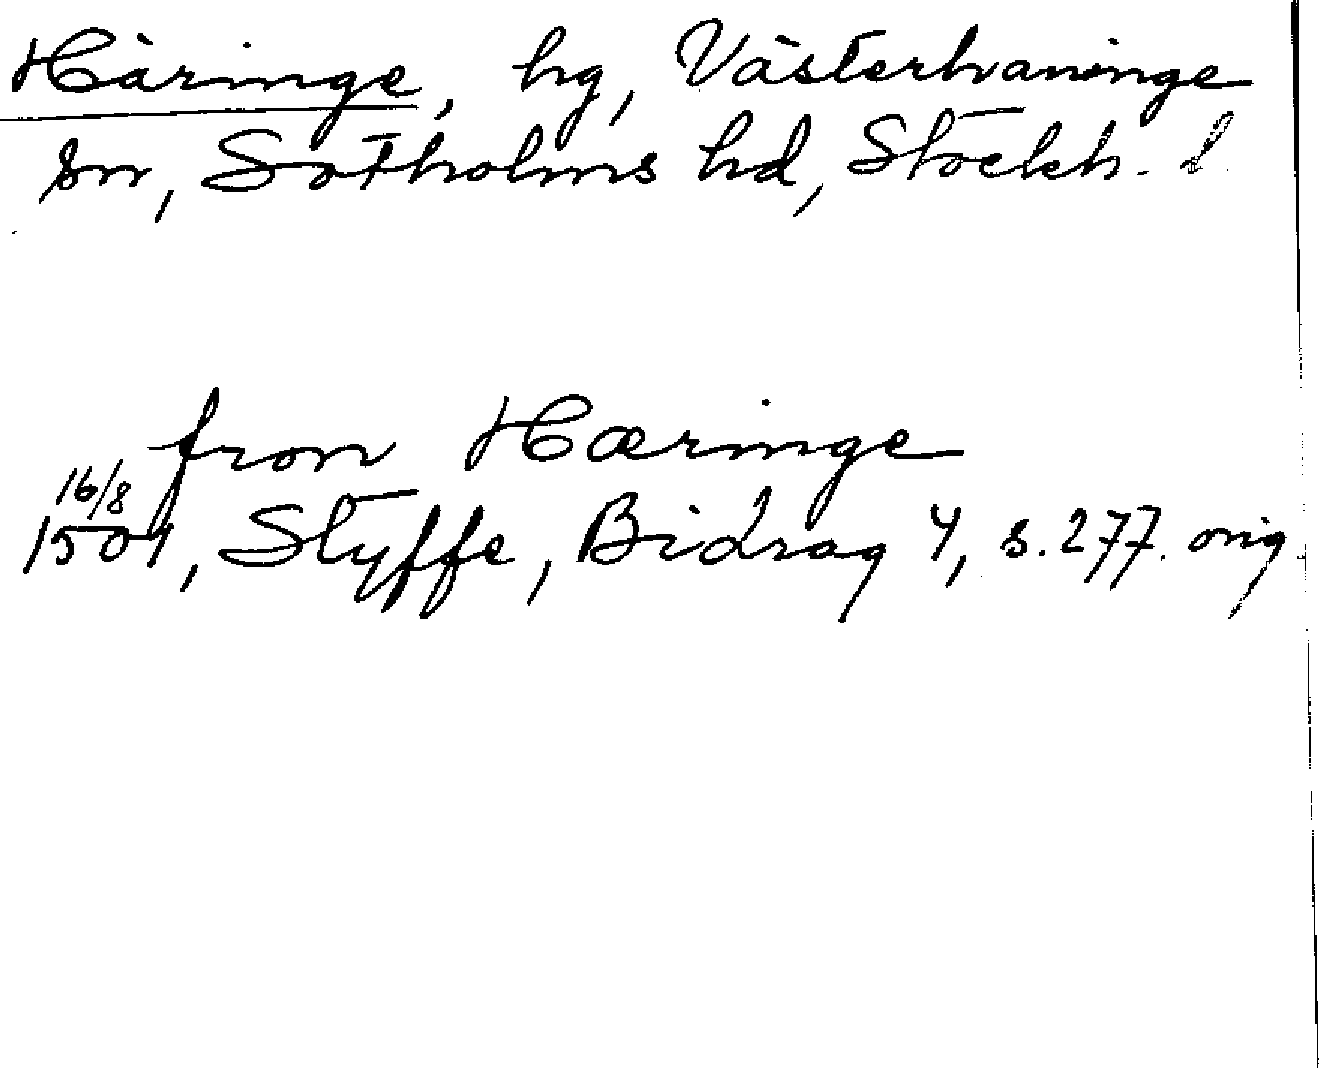 Häringe, hg, Västerhaninge
sn, Sotholms hd, Stockh. l.
fron Hæringe
16/8
1501, Styffe, Bidrag 4, s. 277. orig.